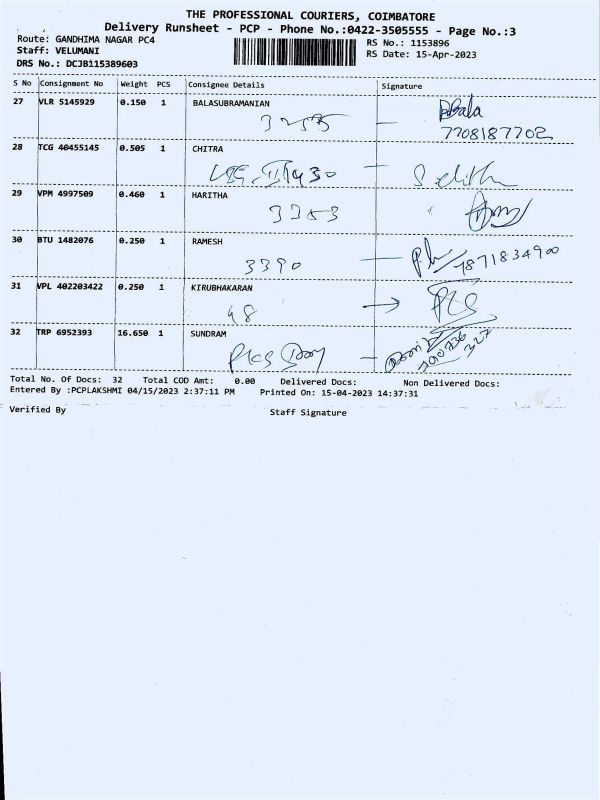 THE PROFESSIONAL COURIERS, COIMBATORE
Delivery Runsheet - PCP - Phone No.:0422-3505555 - Page No.:3
Route: GANDHIMA NAGAR PC4
Staff: VELUMANI
DRS No.: DCJB115389603
RS No.: 1153896
RS Date: 15-Apr-2023
S No Consignment No Weight PCS Consignee Details Signature
27 VLR 5145929 0.150 1 BALASUBRAMANIAN
Bala
7708187702
28 TCG 40455145 0.505 1 CHITRA
29 VPM 4997509 0.460 1 HARITHA
30 BTU 1482076 0.250 1 RAMESH
3390 7871834900
31 VPL 402203422 0.250 1 KIRUBHAKARAN
48
32 TRP 6952393 16.650 1 SUNDRAM
Total No. Of Docs: 32 Total COD Amt: 0.00 Delivered Docs: Non Delivered Docs:
Entered By :PCPLAKSHMI 04/15/2023 2:37:11 PM Printed On: 15-04-2023 14:37:31
Verified By Staff Signature